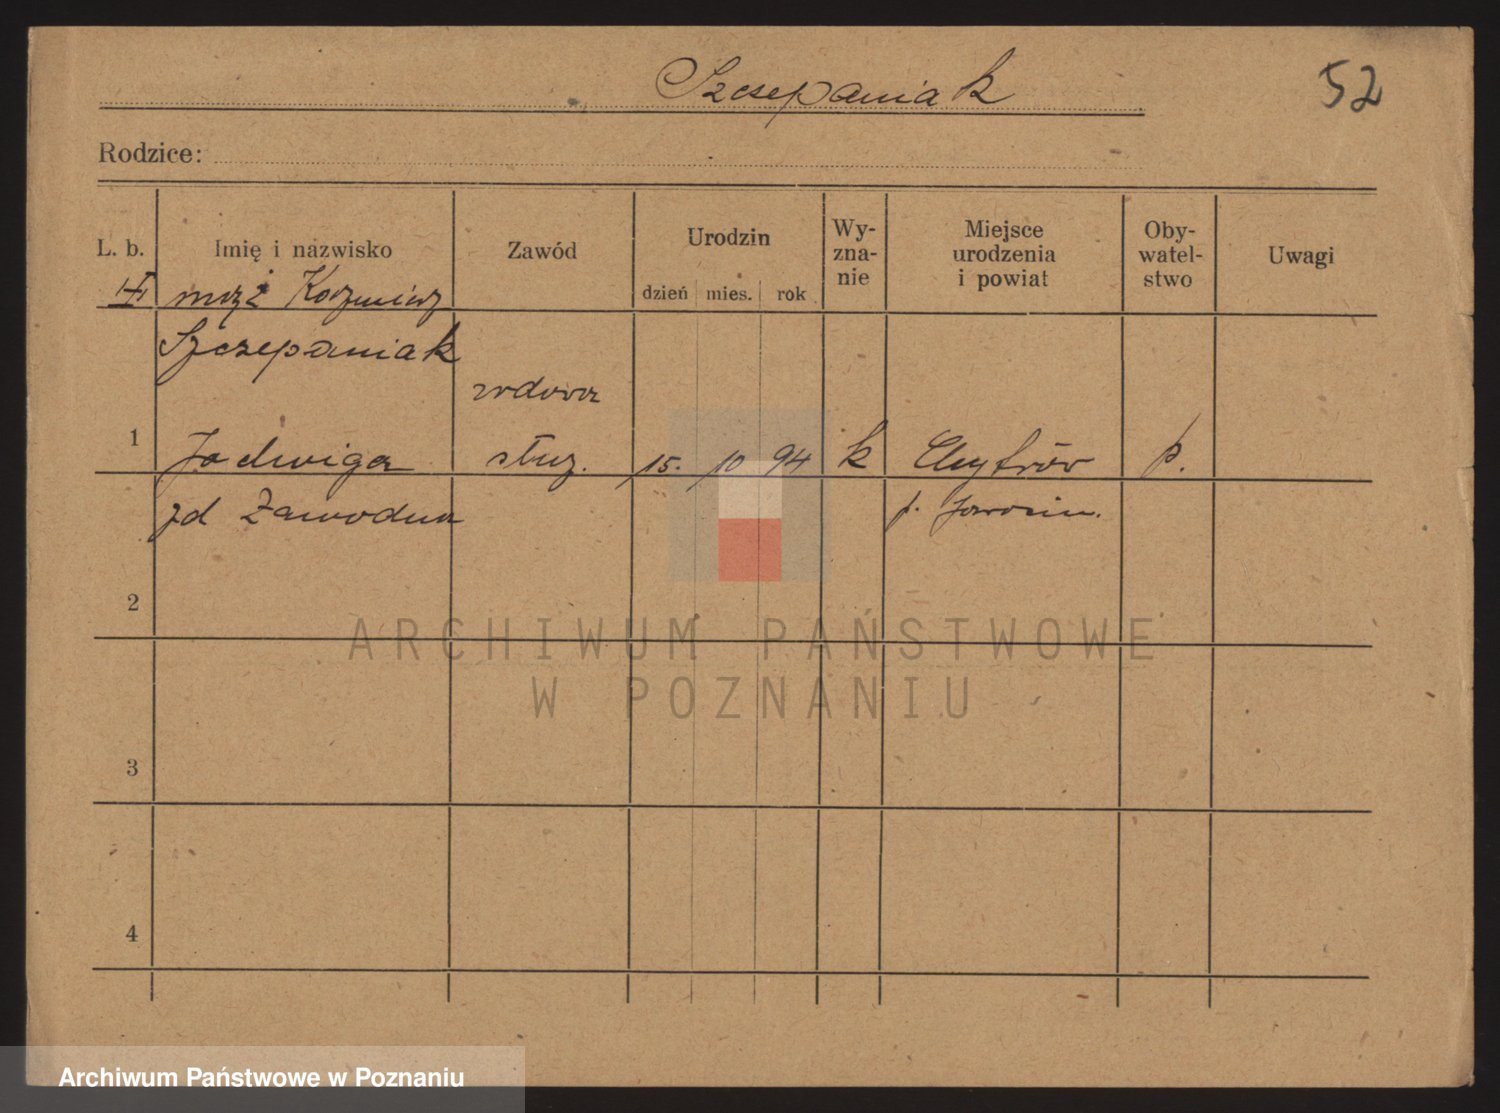 Szczepaniak
52
Rodzice:
L. b. Imię i nazwisko Zawód Urodzin dzień mies. rok Wy-zna-nie Miejsce urodzenia i powiat Oby-watel-stwo Uwagi
mąż Kazimierz
Szczepaniak
wdowa
1 Jadwiga służ. 15. 10 94 k Chytrów p.
zd Zawodna p. Jarocin.
2
3
4
ARCHIWUM PAŃSTWOWE
W POZNANIU
Archiwum Państwowe w Poznaniu